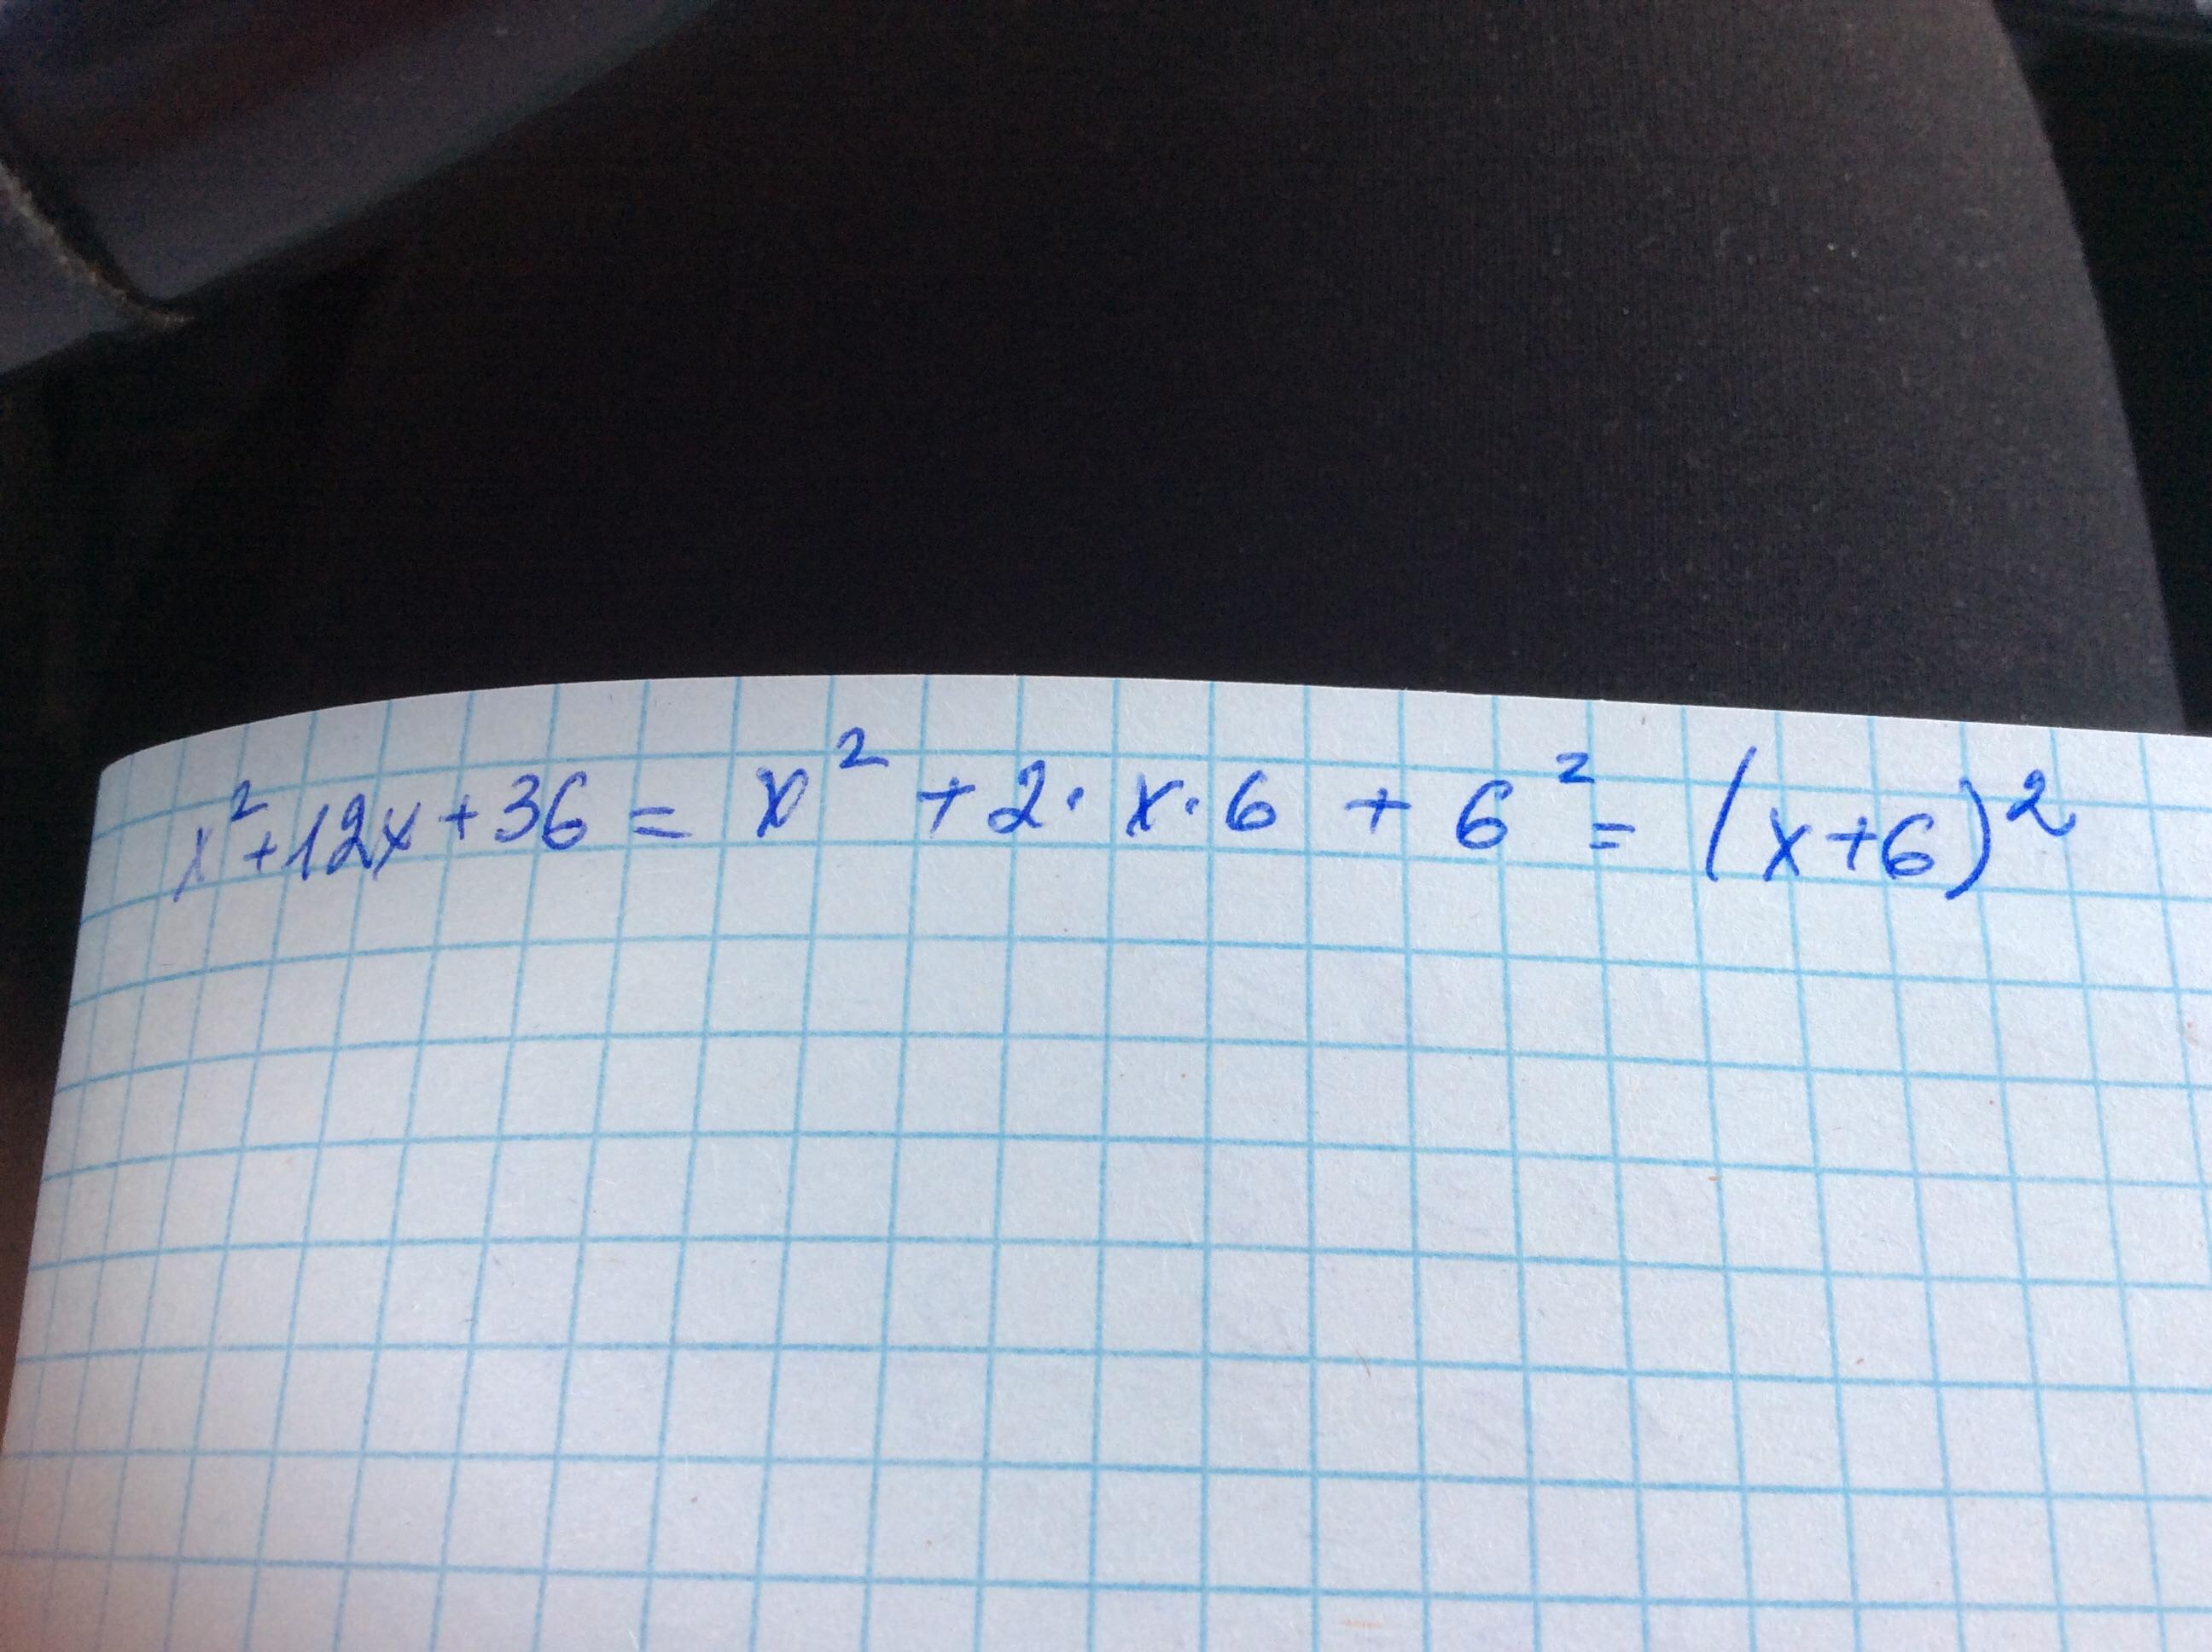 x²+12x+36 = x² + 2· x·6 + 6² = (x+6)²